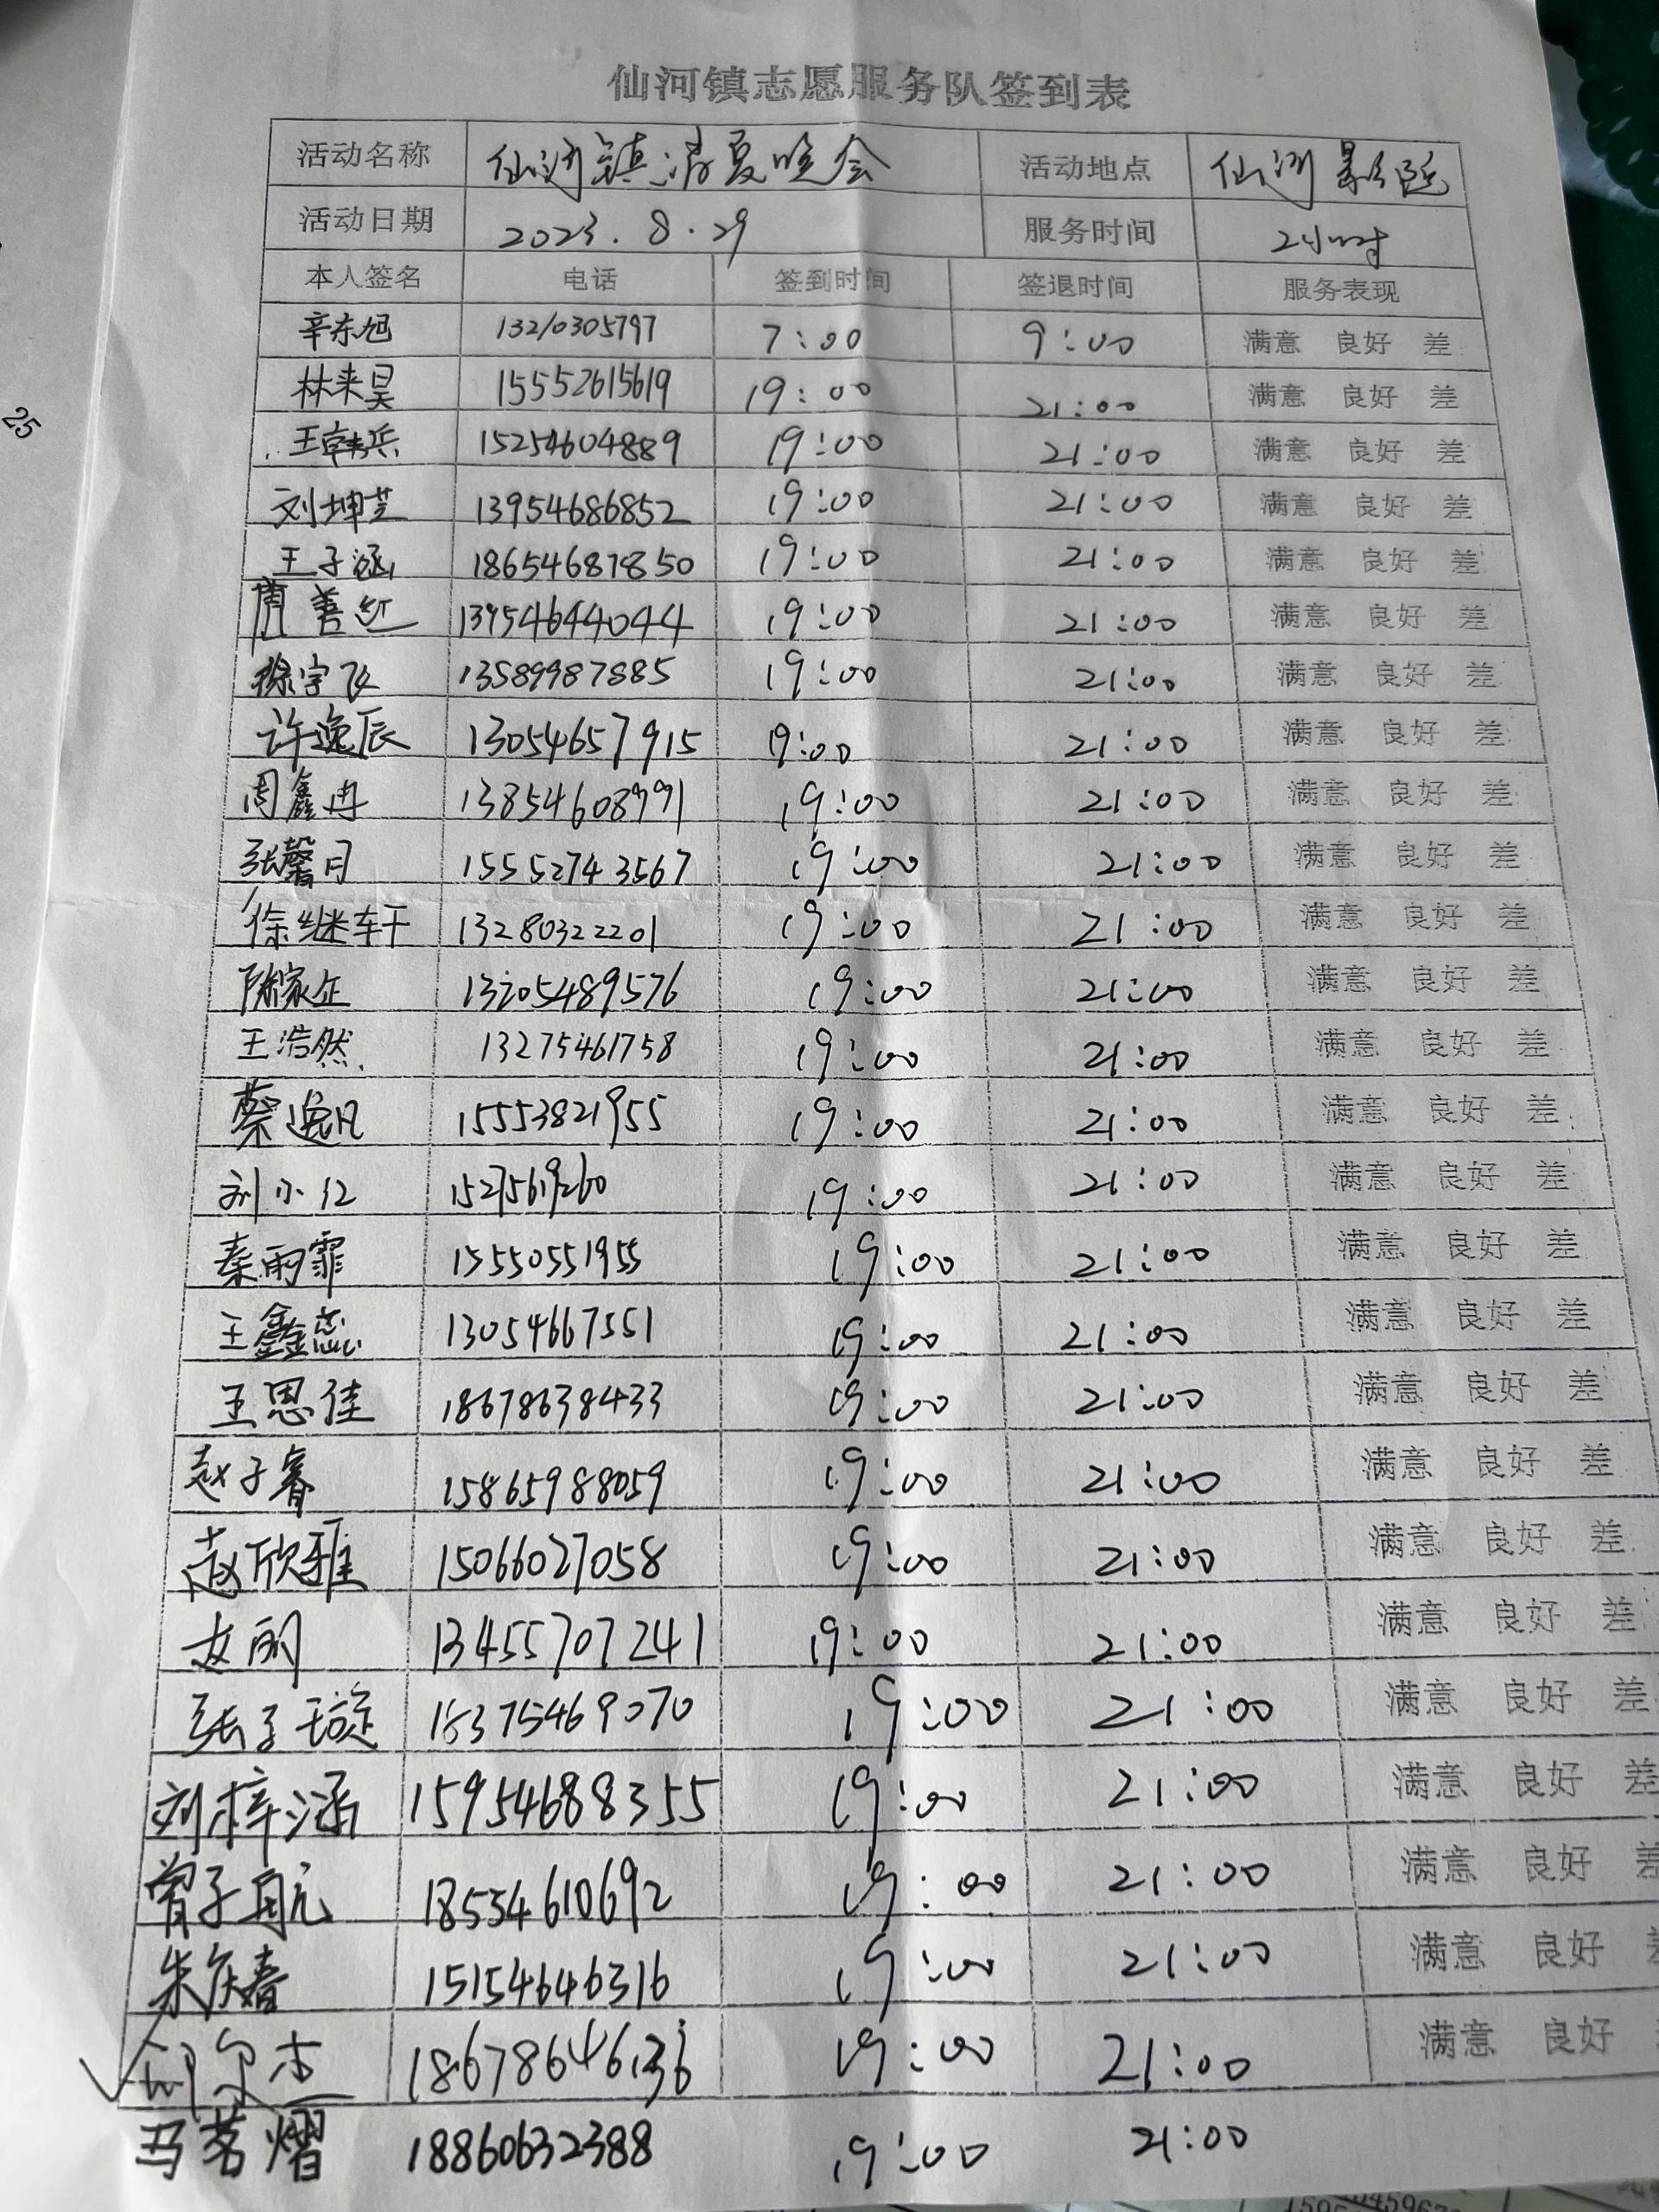 仙河镇志愿服务队签到表
活动名称 仙河镇消夏晚会 活动地点 仙河影院
活动日期 2023.8.29 服务时间 2小时
本人签名 电话 签到时间 签退时间 服务表现
辛东旭 13210305797 7:00 9:00 满意 良好 差
林来昊 15552615619 19:00 21:00 满意 良好 差
王韩兵 15254604889 19:00 21:00 满意 良好 差
刘坤芝 13954686852 19:00 21:00 满意 良好 差
王子涵 18654687850 19:00 21:00 满意 良好 差
善红 13954644044 19:00 21:00 满意 良好 差
徐宇飞 13589987885 19:00 21:00 满意 良好 差
许逸辰 13054657915 19:00 21:00 满意 良好 差
周鑫冉 13854608991 19:00 21:00 满意 良好 差
张馨月 15552743567 19:00 21:00 满意 良好 差
徐继轩 13280322201 19:00 21:00 满意 良好 差
陈家正 13205489576 19:00 21:00 满意 良好 差
王浩然 13275461758 19:00 21:00 满意 良好 差
蔡逸凡 15553821955 19:00 21:00 满意 良好 差
刘小红 15275619260 19:00 21:00 满意 良好 差
秦雨霏 15550551955 19:00 21:00 满意 良好 差
王鑫蕊 13054667551 19:00 21:00 满意 良好 差
王恩佳 18678638433 19:00 21:00 满意 良好 差
赵子睿 15865988059 19:00 21:00 满意 良好 差
赵欣雅 15066027058 19:00 21:00 满意 良好 差
丽 13455707241 19:00 21:00 满意 良好 差
张子璇 18375469070 19:00 21:00 满意 良好 差
刘梓涵 15954688355 19:00 21:00 满意 良好 差
曾子航 18554610692 19:00 21:00 满意 良好 差
朱庆春 15154646316 19:00 21:00 满意 良好
18678646136 19:00 21:00 满意 良好
马茗熠 18860632388 19:00 21:00
25